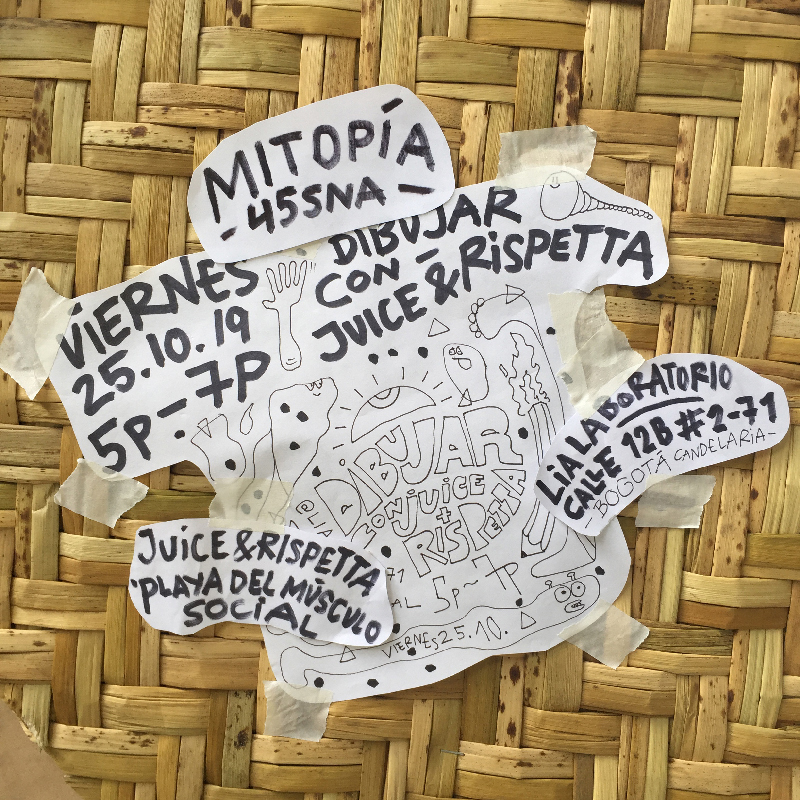 MITOPÍA
- 45SNA -
DIBUJAR
CON -
JUICE & RISPETTA
VIERNES
25.10.19
5P-7P
LIA LABORATORIO
CALLE 12B #2-71
- BOGOTÁ CANDELARIA -
DIBUJAR
CON JUICE
+
RISPETTA
5P~7P
VIERNES 25.10.
JUICE & RISPETTA
PLAYA DEL MÚSCULO
SOCIAL